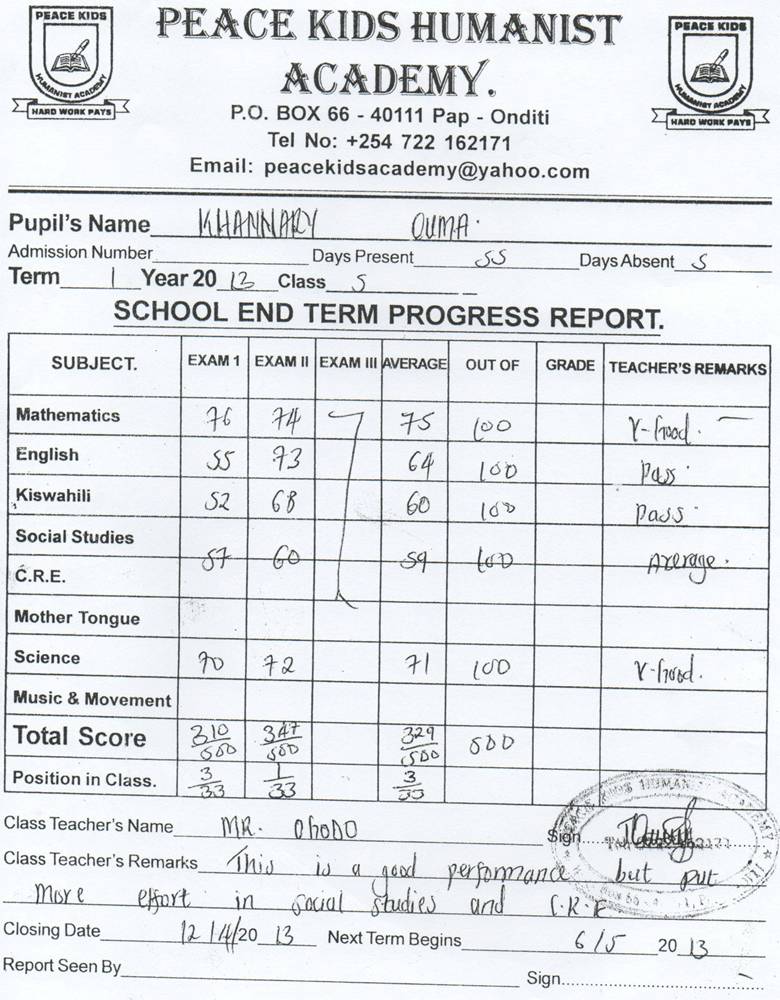 PEACE KIDS
HUMANIST ACADEMY
HARD WORK PAYS
PEACE KIDS HUMANIST
ACADEMY.
PEACE KIDS
HUMANIST ACADEMY
HARD WORK PAYS
P.O. BOX 66 - 40111 Pap - Onditi
Tel No: +254 722 162171
Email: peacekidsacademy@yahoo.com
Pupil's Name KHANNARY OUMA.
Admission Number Days Present 55 Days Absent 5
Term 1 Year 20 13 Class 5
SCHOOL END TERM PROGRESS REPORT.
SUBJECT. EXAM 1 EXAM II EXAM III AVERAGE OUT OF GRADE TEACHER'S REMARKS
Mathematics 76 74 75 100 V-Good.
English 55 73 64 100 Pass.
Kiswahili 52 68 60 100 Pass.
Social Studies
57 60 59 100 Average.
C.R.E.
Mother Tongue
Science 70 72 71 100 V-Good.
Music & Movement
Total Score 310/500 347/500 329/500 500
Position in Class. 3/33 1/33 3/33
Class Teacher's Name MR. Sign
Class Teacher's Remarks This is a good performance but put
more effort in social studies and C.R.E
Closing Date 12/4/20 13 Next Term Begins 6/5 20 13
Report Seen By Sign
PEACE KIDS HUMANIST ACADEMY